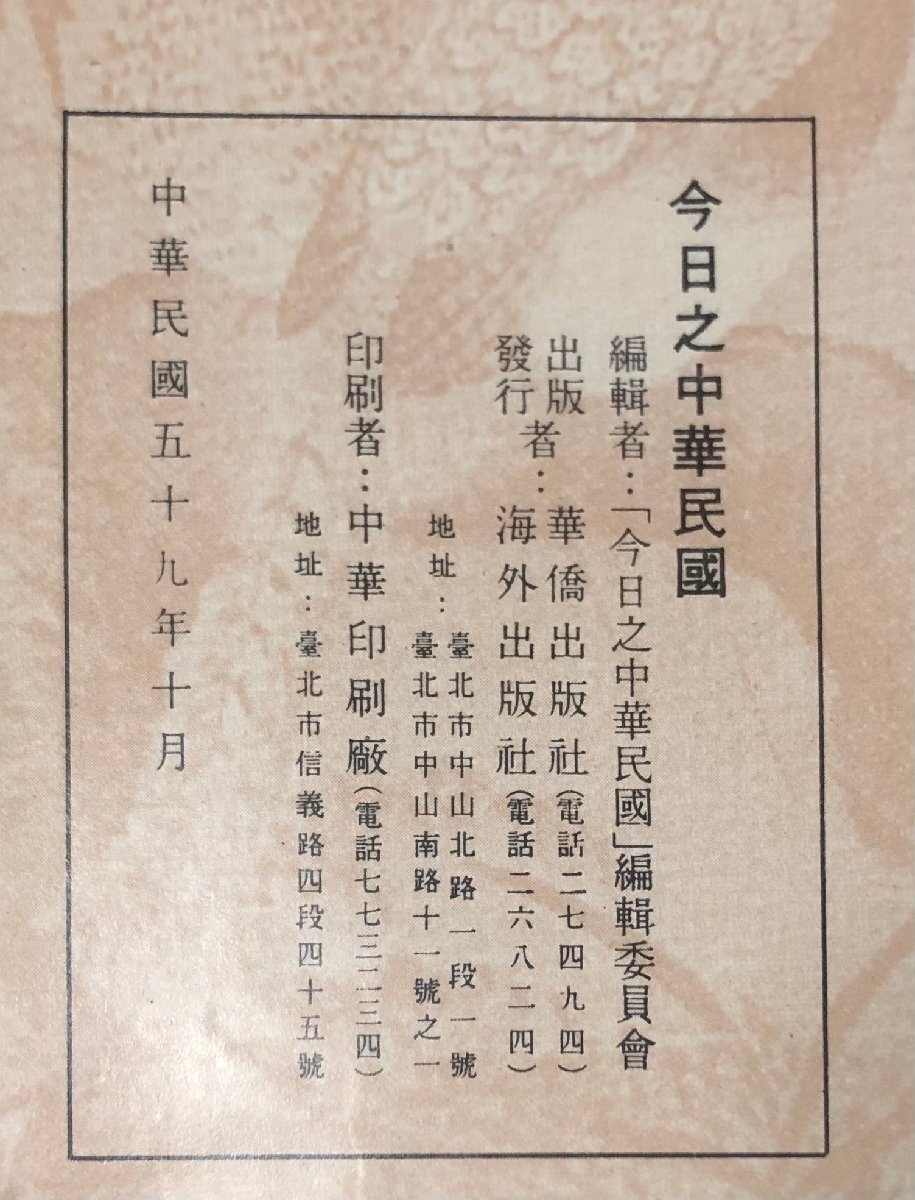 今日之中華民國
編輯者：「今日之中華民國」編輯委員會
出版
發行
者：
華僑出版社（電話二七四九四）
海外出版社（電話二六八二四）
地址：
臺北市中山北路一段一號
臺北市中山南路十一號之一
印刷者：中華印刷廠（電話七七三二三四）
地址：臺北市信義路四段四十五號
中華民國五十九年十月